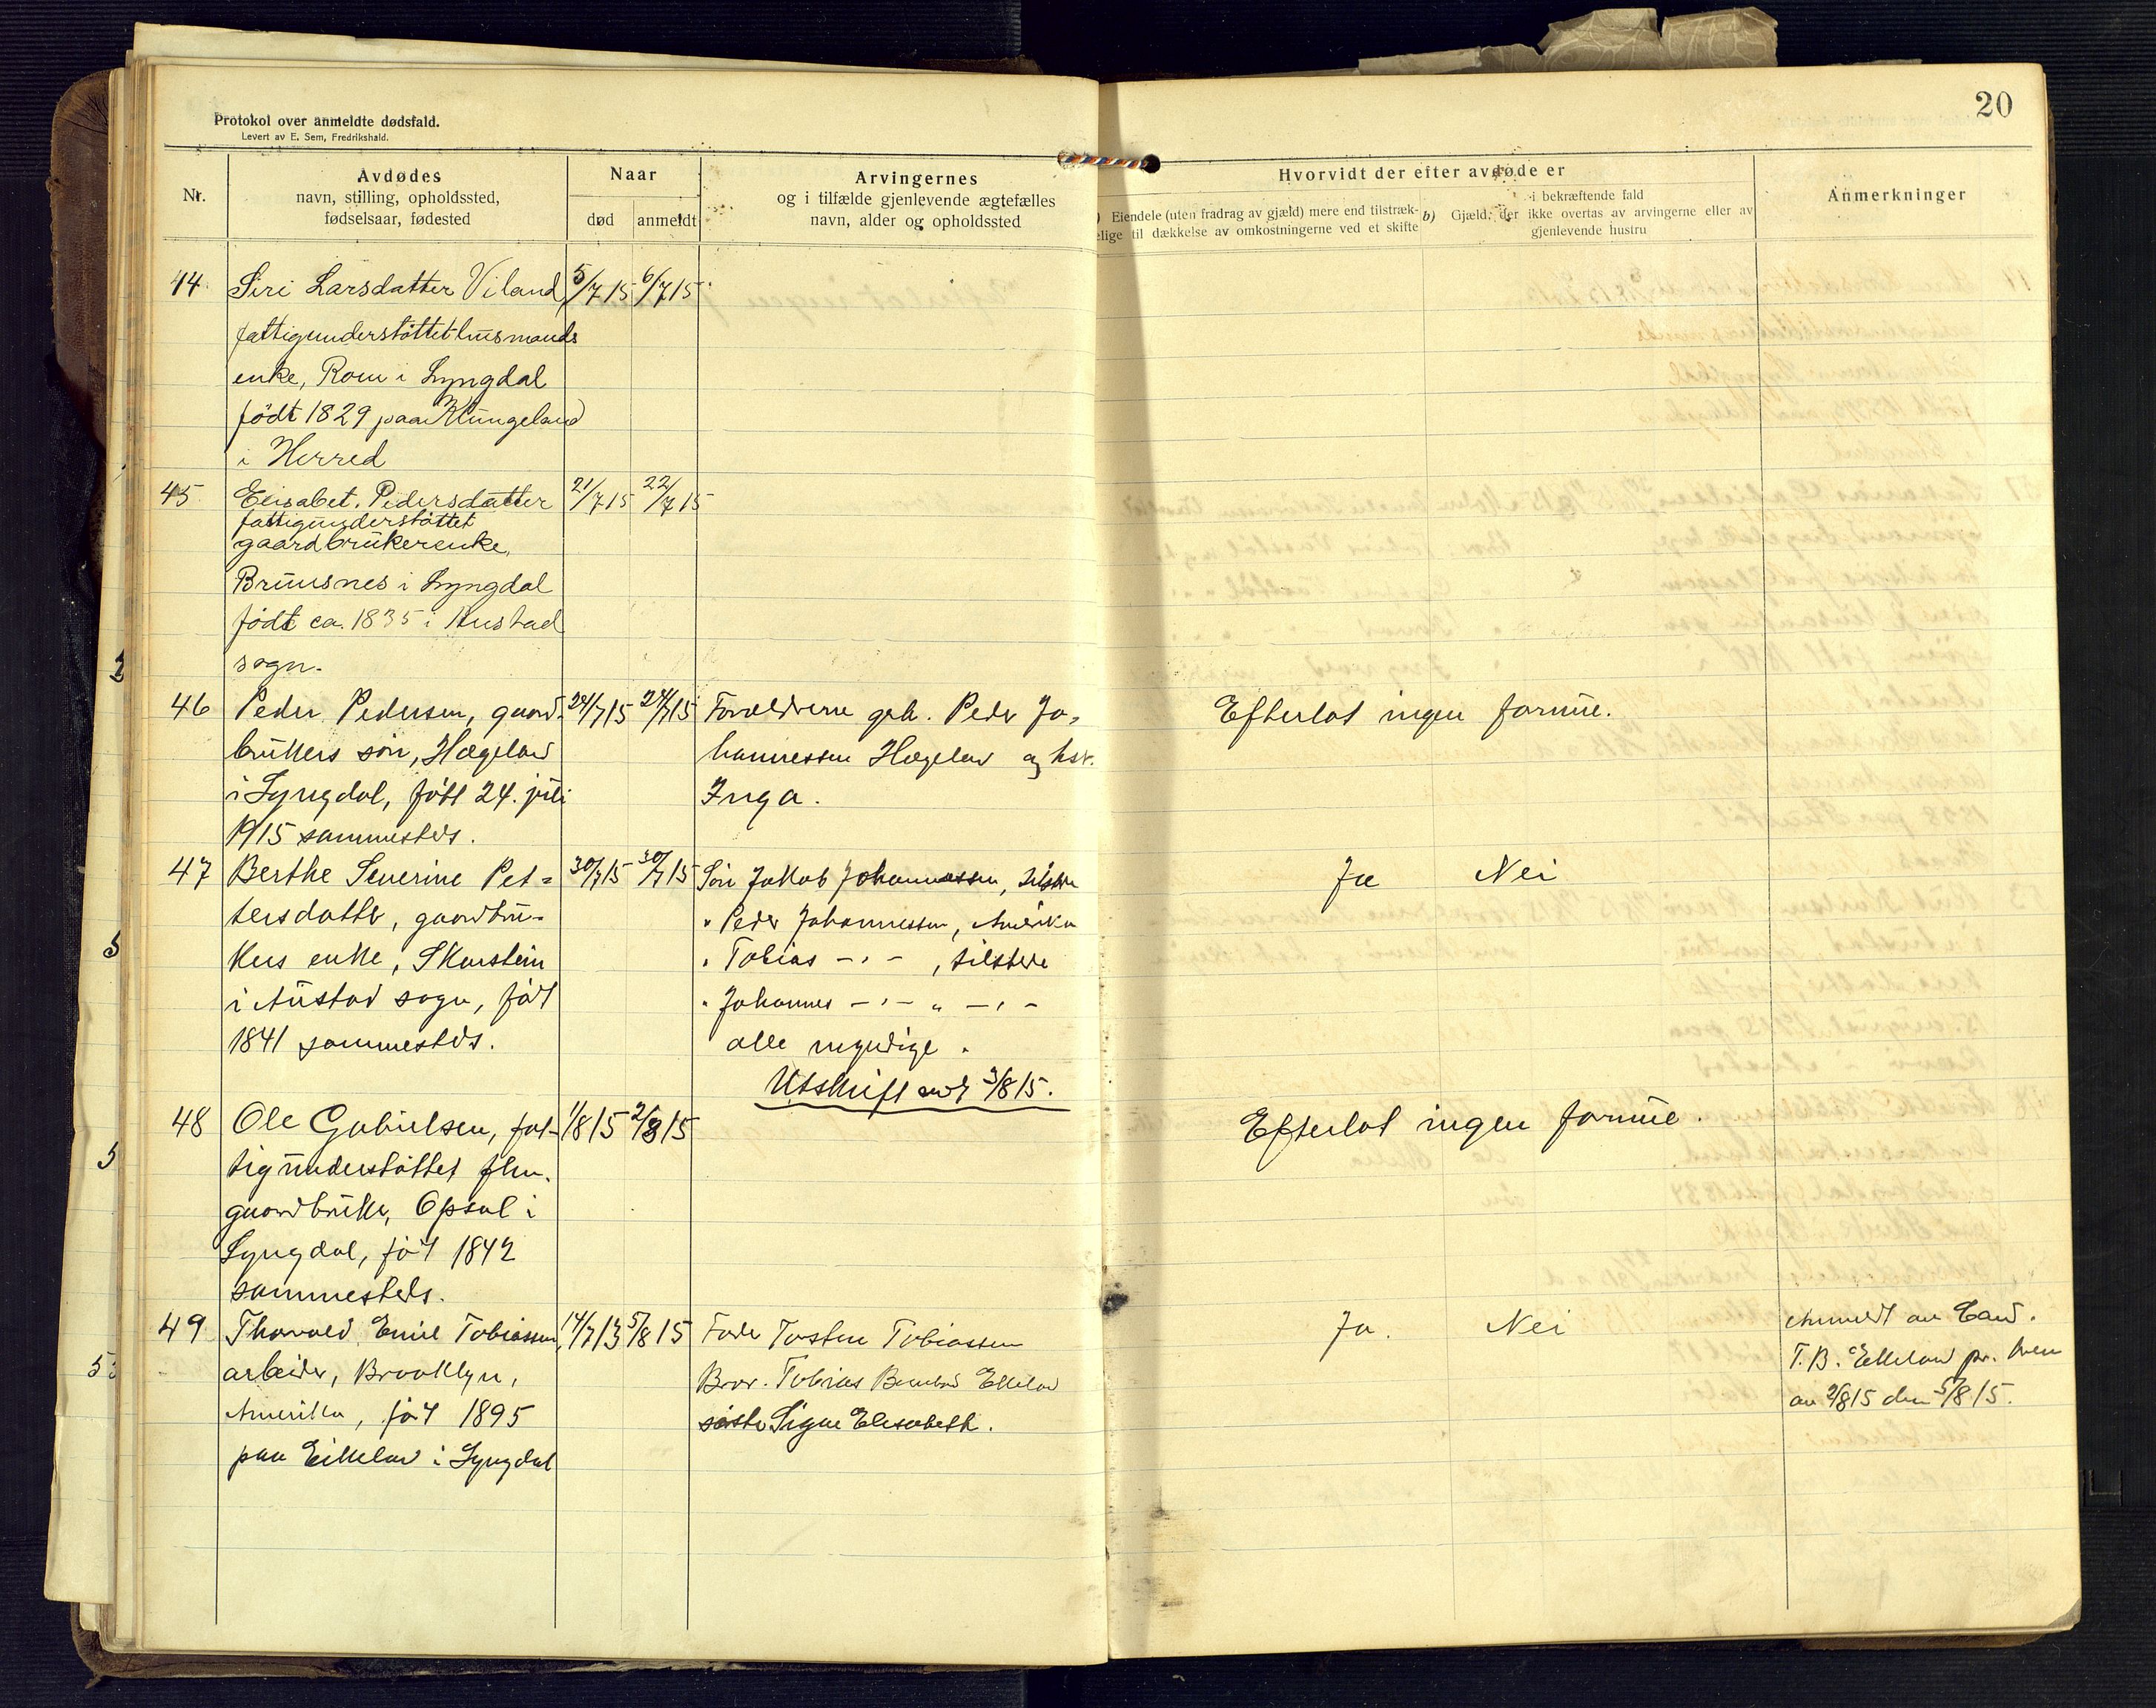 20
Protokol over anmeldte dødsfald.
Levert av E. Sem, Fredrikshald.
Nr.
Avdødes
navn, stilling, opholdssted,
fødselsaar, fødested
Naar
død
anmeldt
Arvingernes
og i tilfælde gjenlevende ægtefælles
navn, alder og opholdssted
Hvorvidt der efter avdøde er
Eiendele (uten fradrag av gjæld) mere end tilstræk-
elige til dækkelse av omkostningerne ved et skifte
i bekræftende fald
b) Gjæld, der ikke overtas av arvingerne eller av
gjenlevende hustru
Anmerkninger
44. Siri Larsdatter Viland 5/7 15 6/7 15
fattigunderstøttet husmands
enke, Rom i Lyngdal
født 1829 paa Klungeland
i Herred
45. Elisabet Pedersdatter 21/7 15 22/7 15
fattigunderstøttet
gaardbrukerenke,
Bruusnes i Lyngdal
født ca. 1835 i Austad
sogn.
46 Peder Pedersen, gaard- 24/7 15 24/7 15 Forældrene grb. Peder Jo-
Efterlot ingen formue.
brukers søn, Hægeland
hannessen Hægeland og hst.
i Lyngdal, født 24. juli
Inga.
1915 sammesteds.
47 Berthe Severine Pet- 30/7 15 30/7 15 Søn Jakob Johannessen, tilstede
Ja Nei
tersdatter, gaardbru-
" Peder Johannessen, Amerika
kers enke, Skarstein
" Tobias -"- , tilstede
i Austad sogn, født
" Johannes -"- " -"-
1841 sammesteds.
alle myndige.
Utskrift sendt 3/8 15.
48 Ole Gabrielsen, fat- 1/8 15 2/8 15
Efterlot ingen formue.
tigunderstøttet fhv.
gaardbruker, Opsal i
Lyngdal, født 1842
sammesteds.
49 Thorvald Emil Tobiassen, 14/7 13 5/8 15 Fader Torsten Tobiassen
Ja. Nei
Anmeldt av Cand.
arbeider, Brooklyn,
Bror. Tobias Bernhard Eikeland
T. B. Eikeland pr. brev
Amerika, født 1895
søster Signe Elisabeth.
av 2/8 15 den 5/8 15.
paa Eikeland i Lyngdal